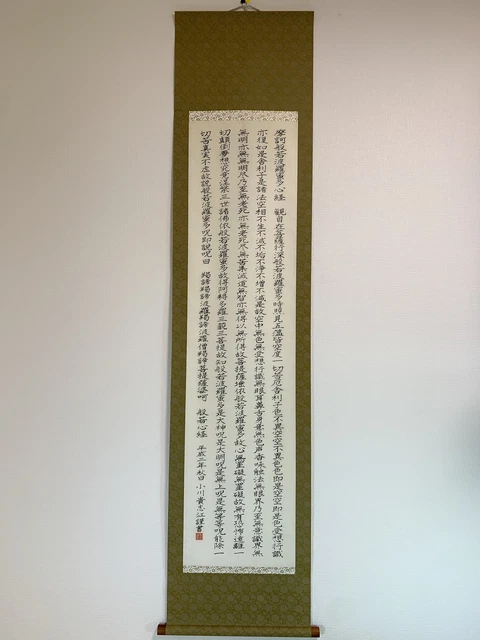 摩訶般若波羅蜜多心経 観自在菩薩行深般若波羅蜜多時照見五蘊皆空度一切苦厄舎利子色不異空空不異色色即是空空即是色受想行識
亦復如是舎利子是諸法空相不生不滅不垢不浄不増不減是故空中無色無受想行識無眼耳鼻舌身意無色声香味触法無眼界乃至無意識界無
無明亦無無明尽乃至無老死亦無老死尽無苦集滅道無智亦無得以無所得故菩提薩埵依般若波羅蜜多故心無罣礙無罣礙故無有恐怖遠離一
切顛倒夢想究竟涅槃三世諸佛依般若波羅蜜多故得阿耨多羅三藐三菩提故知般若波羅蜜多是大神呪是大明呪是無上呪是無等等呪能除一
切苦真実不虚故説般若波羅蜜多呪即説呪曰 羯諦羯諦波羅羯諦波羅僧羯諦菩提薩婆呵 般若心経 平成二年秋日小川貴志江謹書